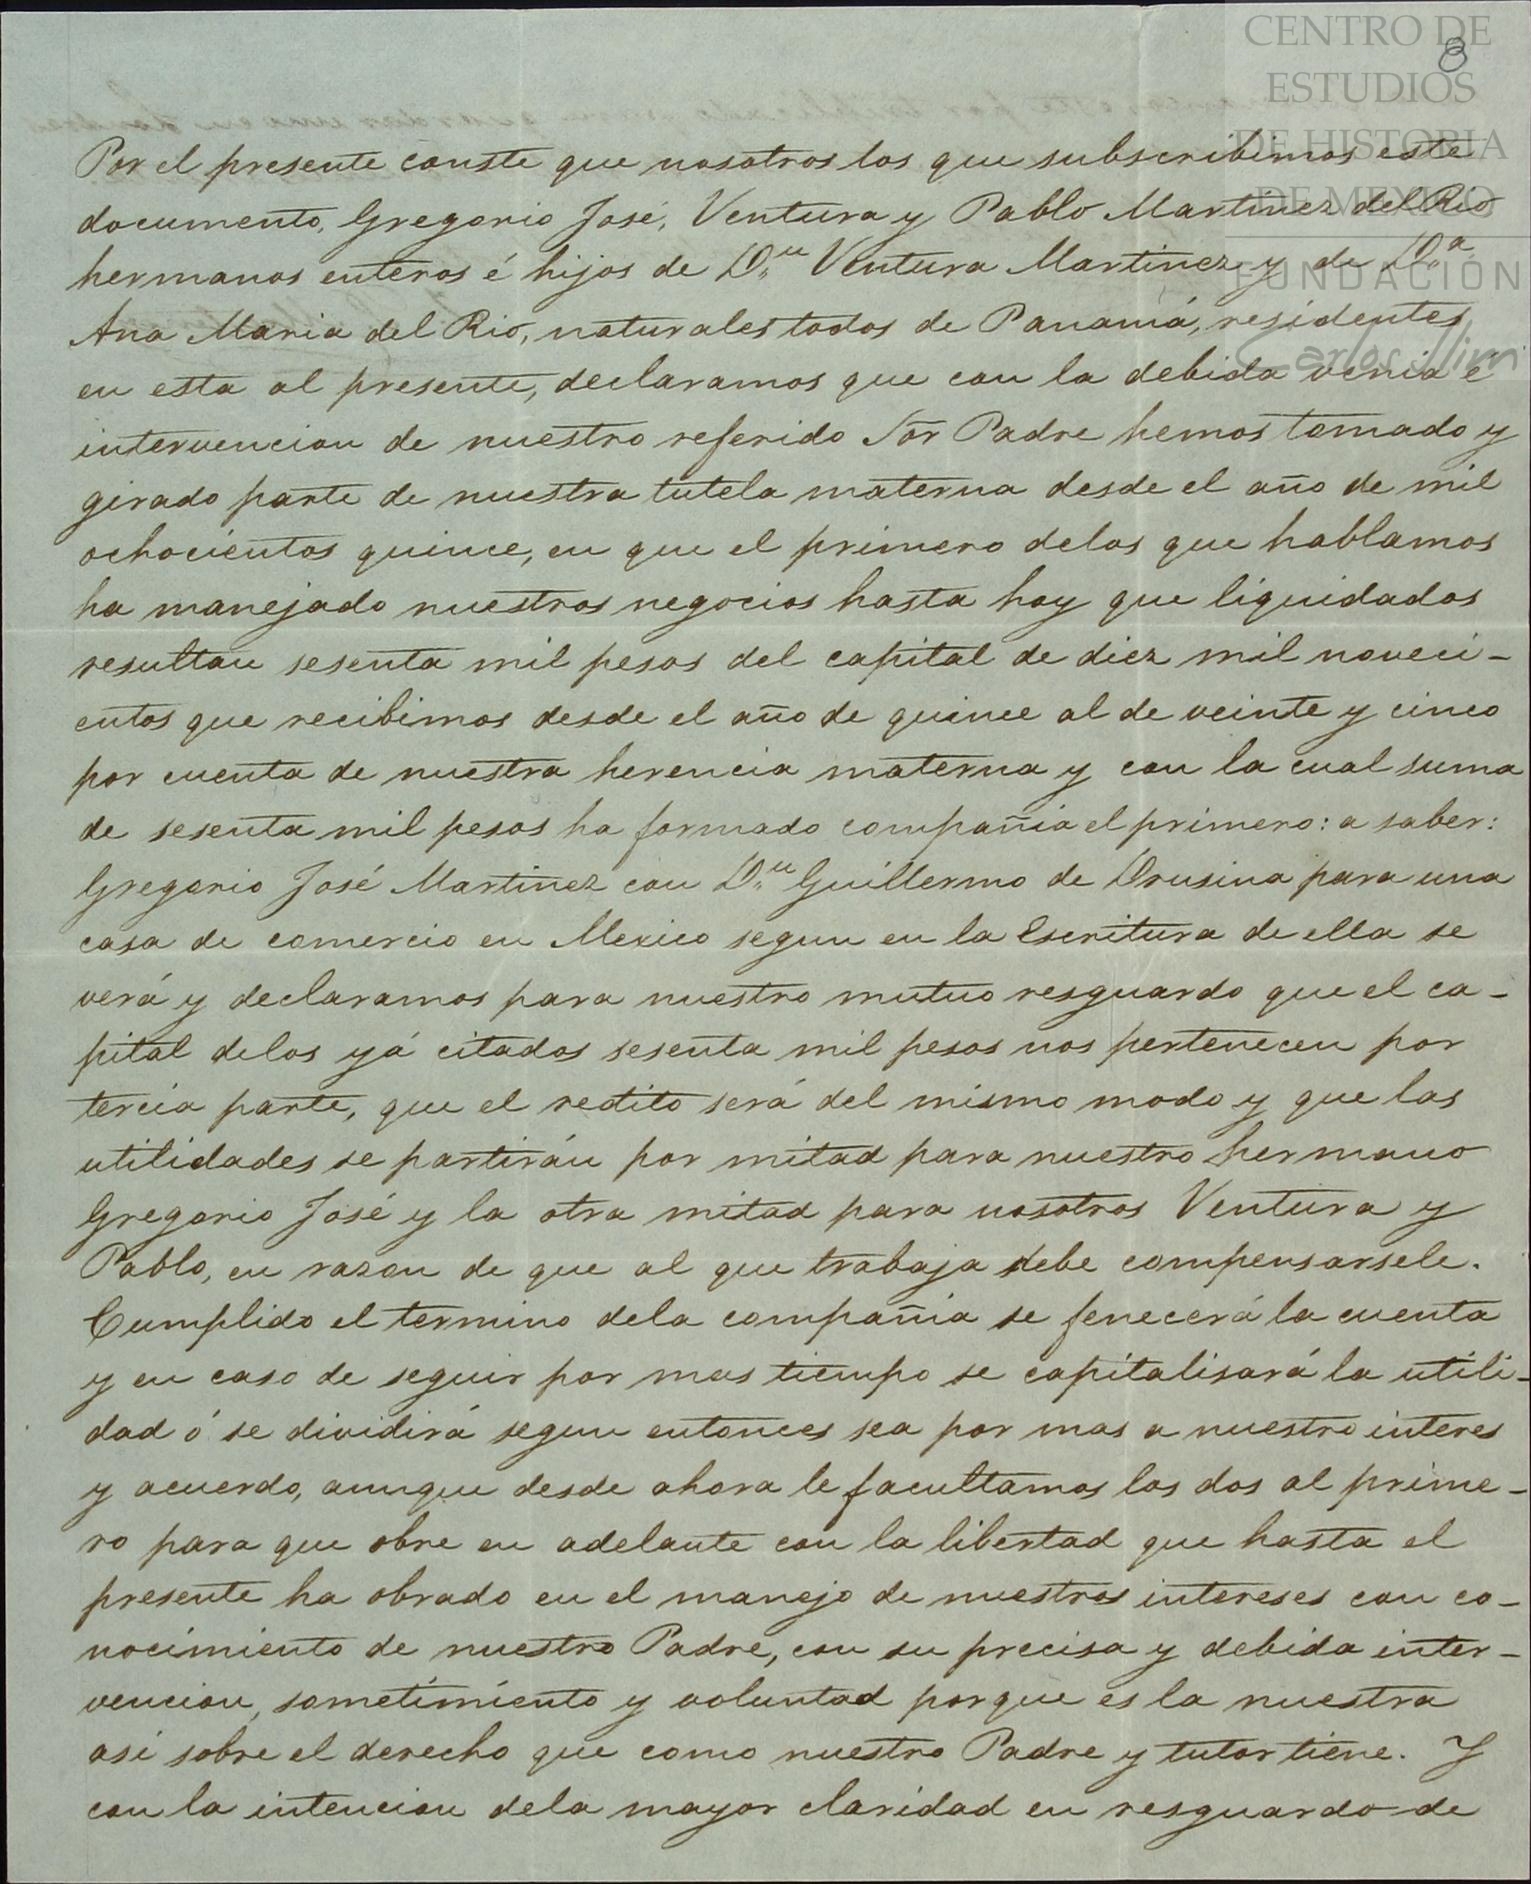 CENTRO DE
ESTUDIOS
DE HISTORIA
DE MEXICO
FUNDACIÓN
Carlos Slim
8
Por el presente conste que nosotros los que subscribimos este
documento, Gregorio José, Ventura y Pablo Martinez del Rio
hermanos enteros é hijos de D.n Ventura Martinez y de D.a
Ana Maria del Rio, naturales todos de Panamá, residentes
en esta al presente, declaramos que con la debida venia é
intervencion de nuestro referido Sor Padre hemos tomado y
girado parte de nuestra tutela materna desde el año de mil
ochocientos quince, en que el primero delos que hablamos
ha manejado nuestros negocios hasta hoy que liquidados
resultan sesenta mil pesos del capital de diez mil noveci-
entos que recibimos desde el año de quince al de veinte y cinco
por cuenta de nuestra herencia materna y con la cual suma
de sesenta mil pesos ha formado compañia el primero: a saber:
Gregorio José Martinez con D.n Guillermo de Drusina para una
casa de comercio en Mexico segun en la Escritura de ella se
verá y declaramos para nuestro mutuo resguardo que el ca-
pital delos yá citados sesenta mil pesos nos pertenecen por
tercia parte, que el redito será del mismo modo y que las
utilidades se partirán por mitad para nuestro hermano
Gregorio José y la otra mitad para nosotros Ventura y
Pablo, en razon de que al que trabaja debe compensarsele.
Cumplido el termino dela compañia se fenecerá la cuenta
y en caso de seguir por mas tiempo se capitalisará la utili-
dad ó se dividirá segun entonces sea por mas a nuestro interes
y acuerdo, aunque desde ahora le facultamos los dos al prime-
ro para que obre en adelante con la libertad que hasta el
presente ha obrado en el manejo de nuestros intereses con co-
nocimiento de nuestro Padre, con su precisa y debida inter-
vencion, sometimiento y voluntad porque es la nuestra
asi sobre el derecho que como nuestro Padre y tutor tiene. Y
con la intencion dela mayor claridad en resguardo de